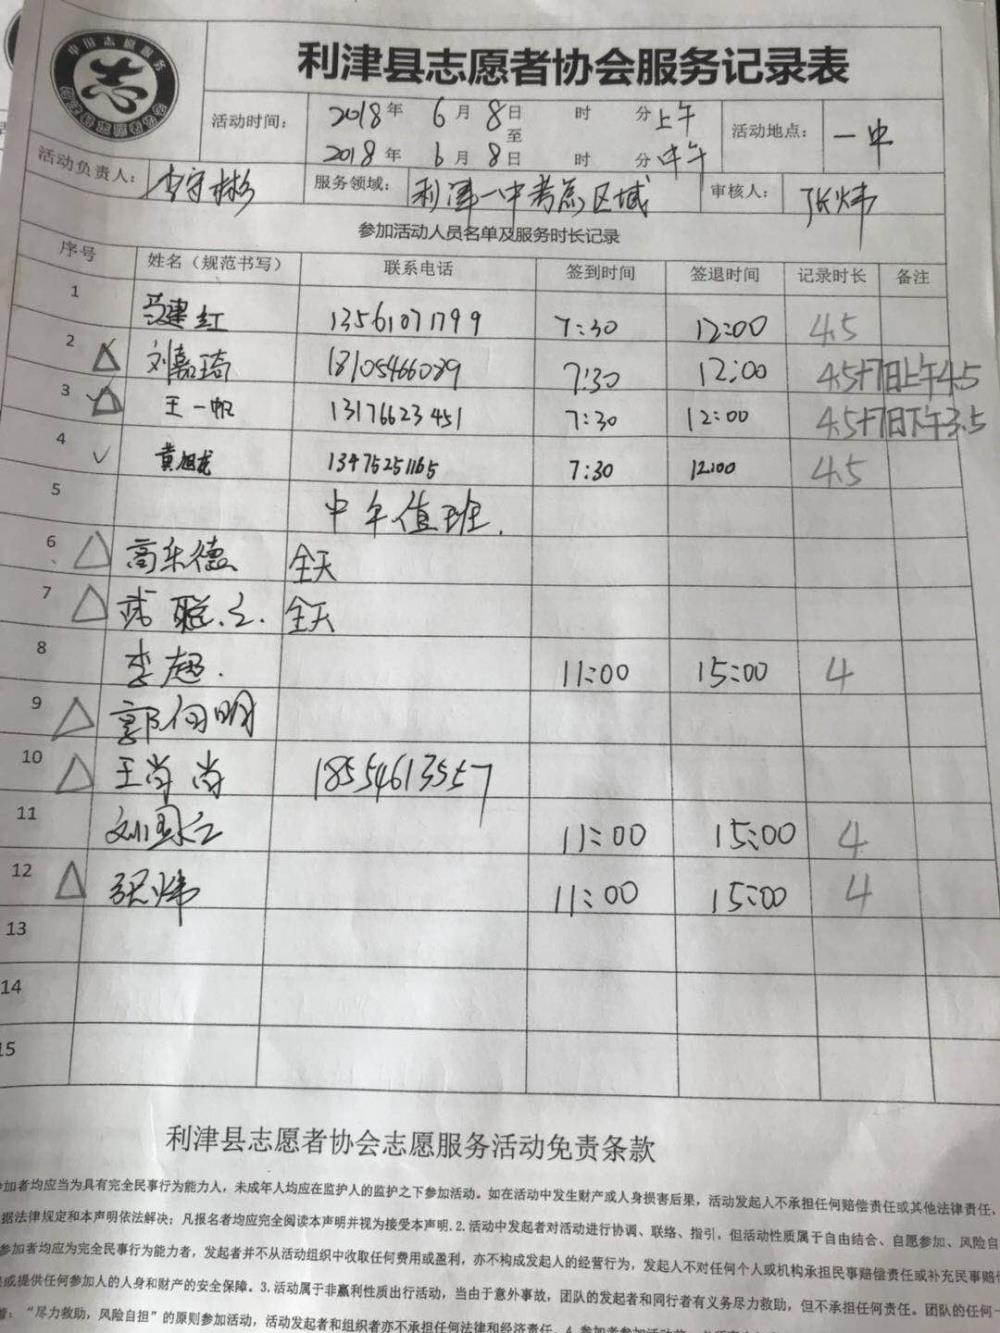 中国志愿服务
利津县志愿者协会服务记录表
活动时间： 2018年 6月 8日 时 分 上午
至
2018年 6月 8日 时 分 中午
活动地点： 一中
活动负责人： 李守彬 服务领域： 利津一中考点区域 审核人： 张炜
参加活动人员名单及服务时长记录
序号 姓名（规范书写） 联系电话 签到时间 签退时间 记录时长 备注
1 马建红 13561071799 7:30 12:00 4.5
2 刘嘉琦 18105466089 7:30 12:00 4.5+7日上午4.5
3 王一帆 13176623451 7:30 12:00 4.5+7日下午3.5
4 黄旭龙 13475251165 7:30 12:00 4.5
5 中午值班.
6 高乐德 全天
7 武聪之. 全天
8 李超. 11:00 15:00 4
9 郭向明
10 王尚尚 18554613557
11 刘国之 11:00 15:00 4
12 张炜 11:00 15:00 4
13
14
15
利津县志愿者协会志愿服务活动免责条款
参加者均应当为具有完全民事行为能力人，未成年人均应在监护人的监护之下参加活动。如在活动中发生财产或人身损害后果，活动发起人不承担任何赔偿责任或其他法律责任，
据法律规定和本声明依法解决；凡报名者均应完全阅读本声明并视为接受本声明.2.活动中发起者对活动进行协调、联络、指引，但活动性质属于自由结合、自愿参加、风险自
参加者均应为完全民事行为能力者，发起者并不从活动组织中收取任何费用或盈利，亦不构成发起人的经营行为，发起人不对任何个人或机构承担民事赔偿责任或补充民事赔偿
或提供任何参加人的人身和财产的安全保障。3.活动属于非赢利性质出行活动，当由于意外事故，团队的发起者和同行者有义务尽力救助，但不承担任何责任。团队的任何一
着：“尽力救助，风险自担”的原则参加活动，活动发起者和组织者亦不承担任何法律和经济责任。4.